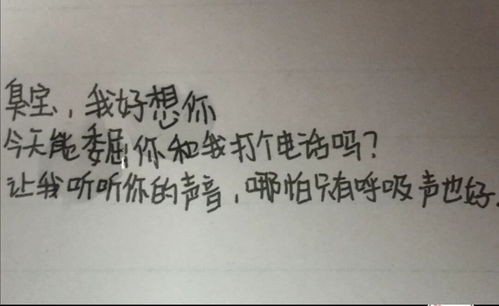 臭宝，我好想你
今天能委屈你和我打个电话吗？
让我听听你的声音，哪怕只有呼吸声也好.